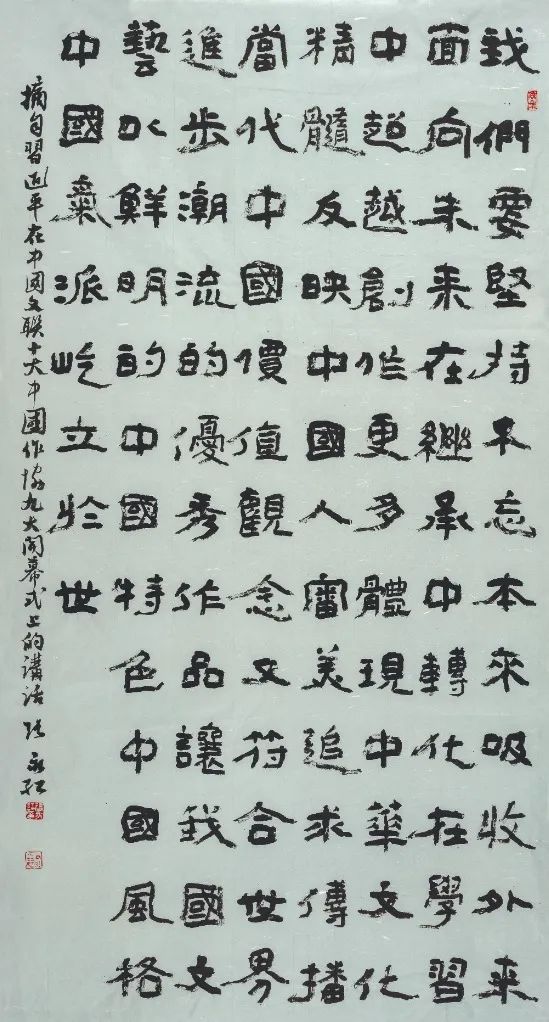 我們要堅持不忘本來吸收外來
面向未來在繼承中轉化在學習
中超越創作更多體現中華文化
精髓反映中國人審美追求傳播
當代中國價值觀念又符合世界
進步潮流的優秀作品讓我國文
藝以鮮明的中國特色中國風格
中國氣派屹立於世
摘自習近平在中國文聯十大中國作協九大開幕式上的講話